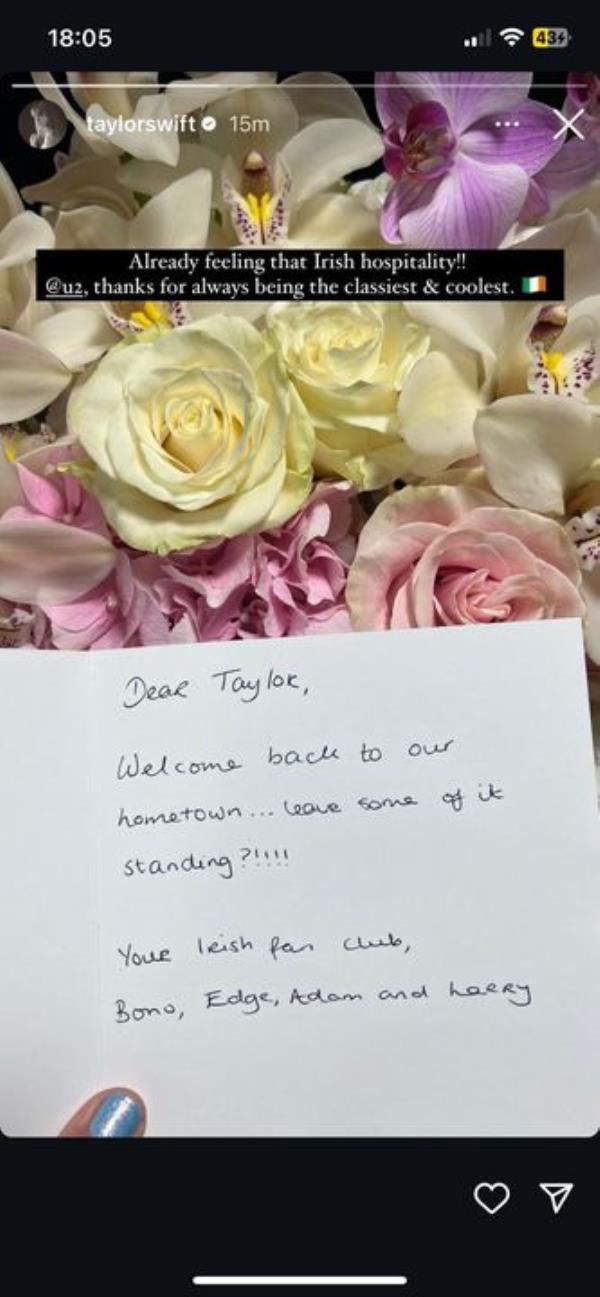 18:05
43
taylorswift 15m
Already feeling that Irish hospitality!!
@u2, thanks for always being the classiest & coolest. 🇮🇪
Dear Taylor,
Welcome back to our
hometown... leave some of it
standing?!!!!
Your Irish fan club,
Bono, Edge, Adam and Larry